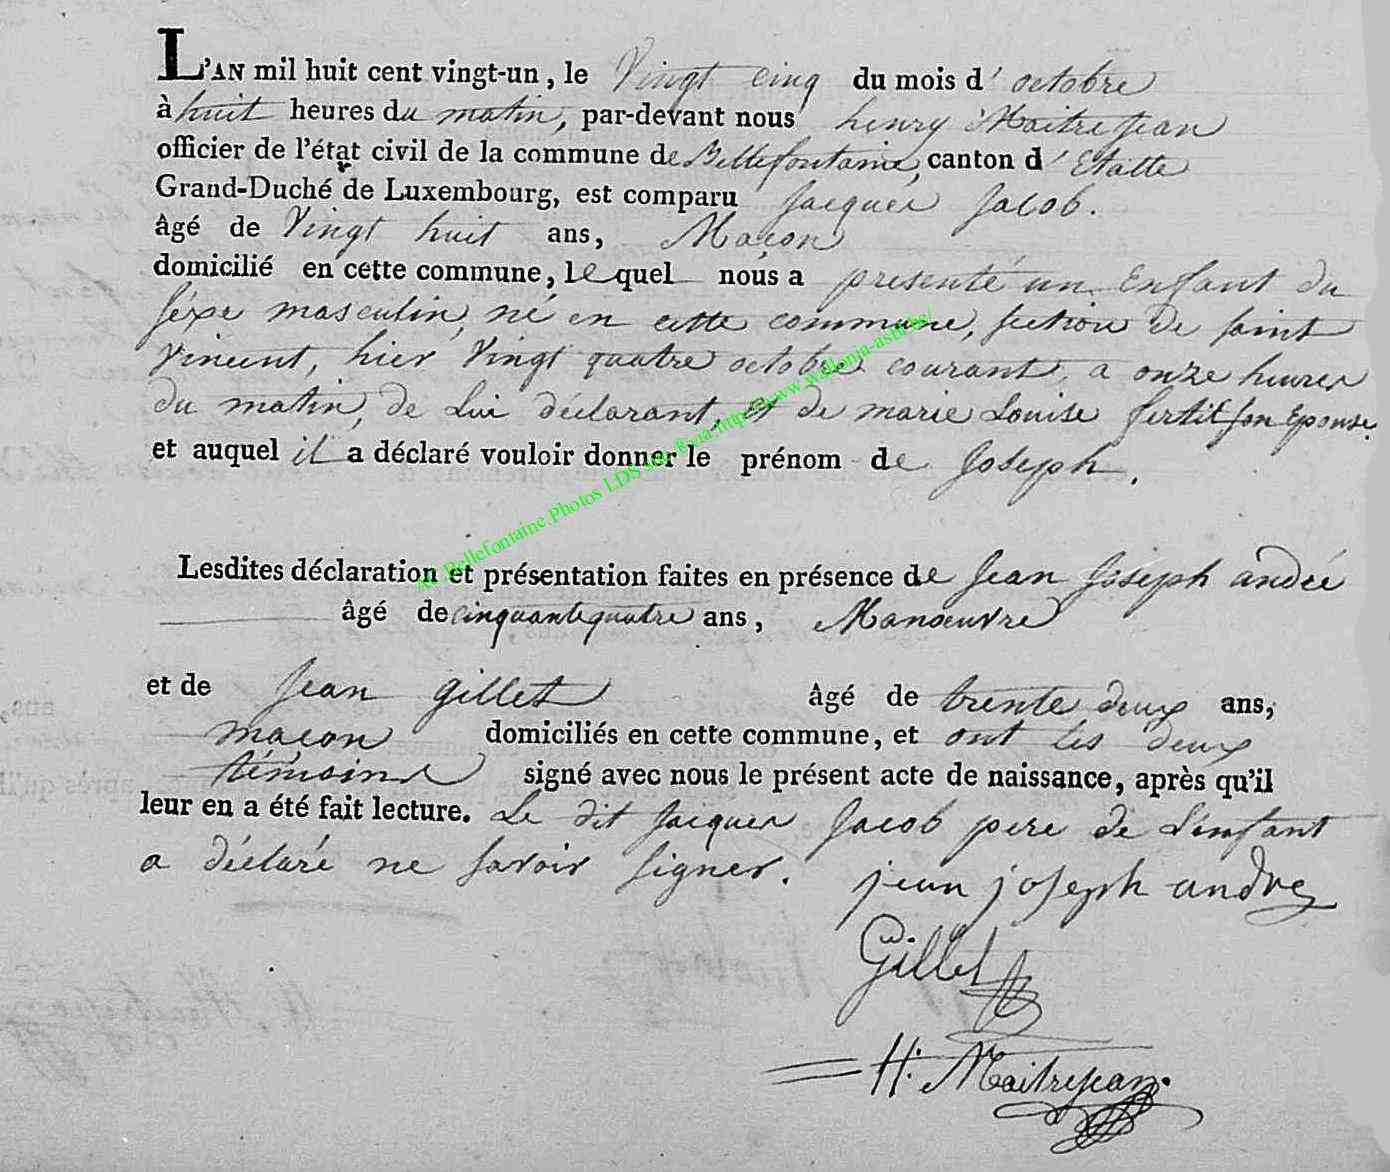 L'AN mil huit cent vingt-un, le Vingt cinq du mois d'octobre
à huit heures du matin, par-devant nous henry Maitrejean
officier de l'état civil de la commune de Bellefontaine, canton d'Etalle
Grand-Duché de Luxembourg, est comparu Jacques Jacob.
âgé de Vingt huit ans, Maçon
domicilié en cette commune, lequel nous a presenté un Enfant du
séxe masculin, né en cette commune, section de saint
Vincent, hier Vingt quatre octobre courant, a onze heures
du matin, de Lui déclarant, et de marie Louise fertil son Epouse.
et auquel il a déclaré vouloir donner le prénom de Joseph.
Lesdites déclaration et présentation faites en présence de Jean Joseph andré
âgé de cinquante quatre ans, Manœuvre
et de Jean gillet âgé de trente deux ans,
maçon domiciliés en cette commune, et ont les deux
témoins signé avec nous le présent acte de naissance, après qu'il
leur en a été fait lecture. Le dit Jacques Jacob pere de L'enfant
a déclaré ne savoir signer.
jean joseph andre
Gillet
H. Maitrejean.
Bellefontaine.Photos LDS via http://www.wallonia-asbl.be/